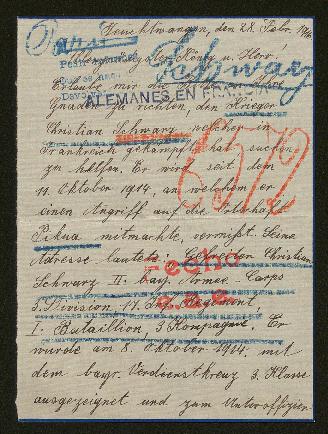 Feuchtwangen, den 28. Febr. 1916
Allergnädigster König u. Herr!
Paris
Schwarz
Erlaube mir die
ALEMANES EN FRANCIA
Gnaden zu richten, den Krieger
Christian Schwarz welcher in
Frankreich gekämpft hat suchen
zu helfen. Er wird seit dem
11. Oktober 1914, an welchem er
einen Angriff auf die Ortschaft
mitmachte, vermißt. Seine
Adresse lautete: Gefreiter Christian
Schwarz II. bayr. Armee Corps
3. Division Inf. Regiment
I. Bataillion, 3 Kompagnie Er
wurde am 8. Oktober 1914 mit
dem bayr. Verdienstkreuz 3. Klasse
ausgezeichnet und zum Unteroffizier